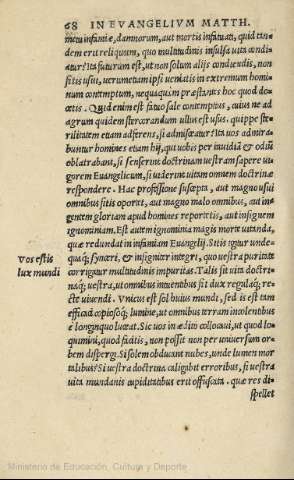 68 IN EVANGELIVM MATTH.
metu infamiæ, damnorum, aut mortis infatuati, quid tan
dem erit reliquum, quo multitudinis insulsa vita condi
atur? Ita futurum est, ut non solum alijs condiendis, non
sitis usui, verumetiam ipsi veniatis in extremum homi
num contemptum, nequaquam præstantes hoc quod do=
cetis. Quid enim est fatuo sale contemptius, cuius ne ad
agrum quidem stercorandum ullus est usus. quippe ste=
rilitatem etiam adferens, si admisceatur? Ita vos admira
buntur homines etiam hij, qui vobis per invidiã & odiũ
oblatrabant, si senserint doctrinam vestram sapere vi
gorem Evangelicum, si viderint vitam omnem doctrinæ
respondere. Hac professione suscepta, aut magno usui
omnibus sitis oportet, aut magno malo omnibus, aut in=
gentem gloriam apud homines reportetis, aut insignem
ignominiam. Est autem ignominia magis morte vitanda,
quæ redundat in infamiam Evangelij. Sitis igitur unde=
quaq; synceri, & insigniter integri, quo vestra puritate
Vos estis corrigatur multitudinis impuritas. Talis sit vita doctri=
lux mundi naq; vestra, ut omnibus intuentibus sit dux regulaq; re=
cte vivendi. Vnicus est sol huius mundi, sed is est tam
efficaci copiosoq; lumine, ut omnibus terram incolentibus
è longinquo luceat. Sic vos in ædito collocavi, ut quod lo=
quimini, quod facitis, non possit non per universum or=
bem dispergi. Si solem obducant nubes, unde lumen mor
talibus? Si vestra doctrina caligabit erroribus, si vestra
vita mundanis cupiditatibus erit offuscata. quæ res di
spellet
Ministerio de Educación, Cultura y Deporte